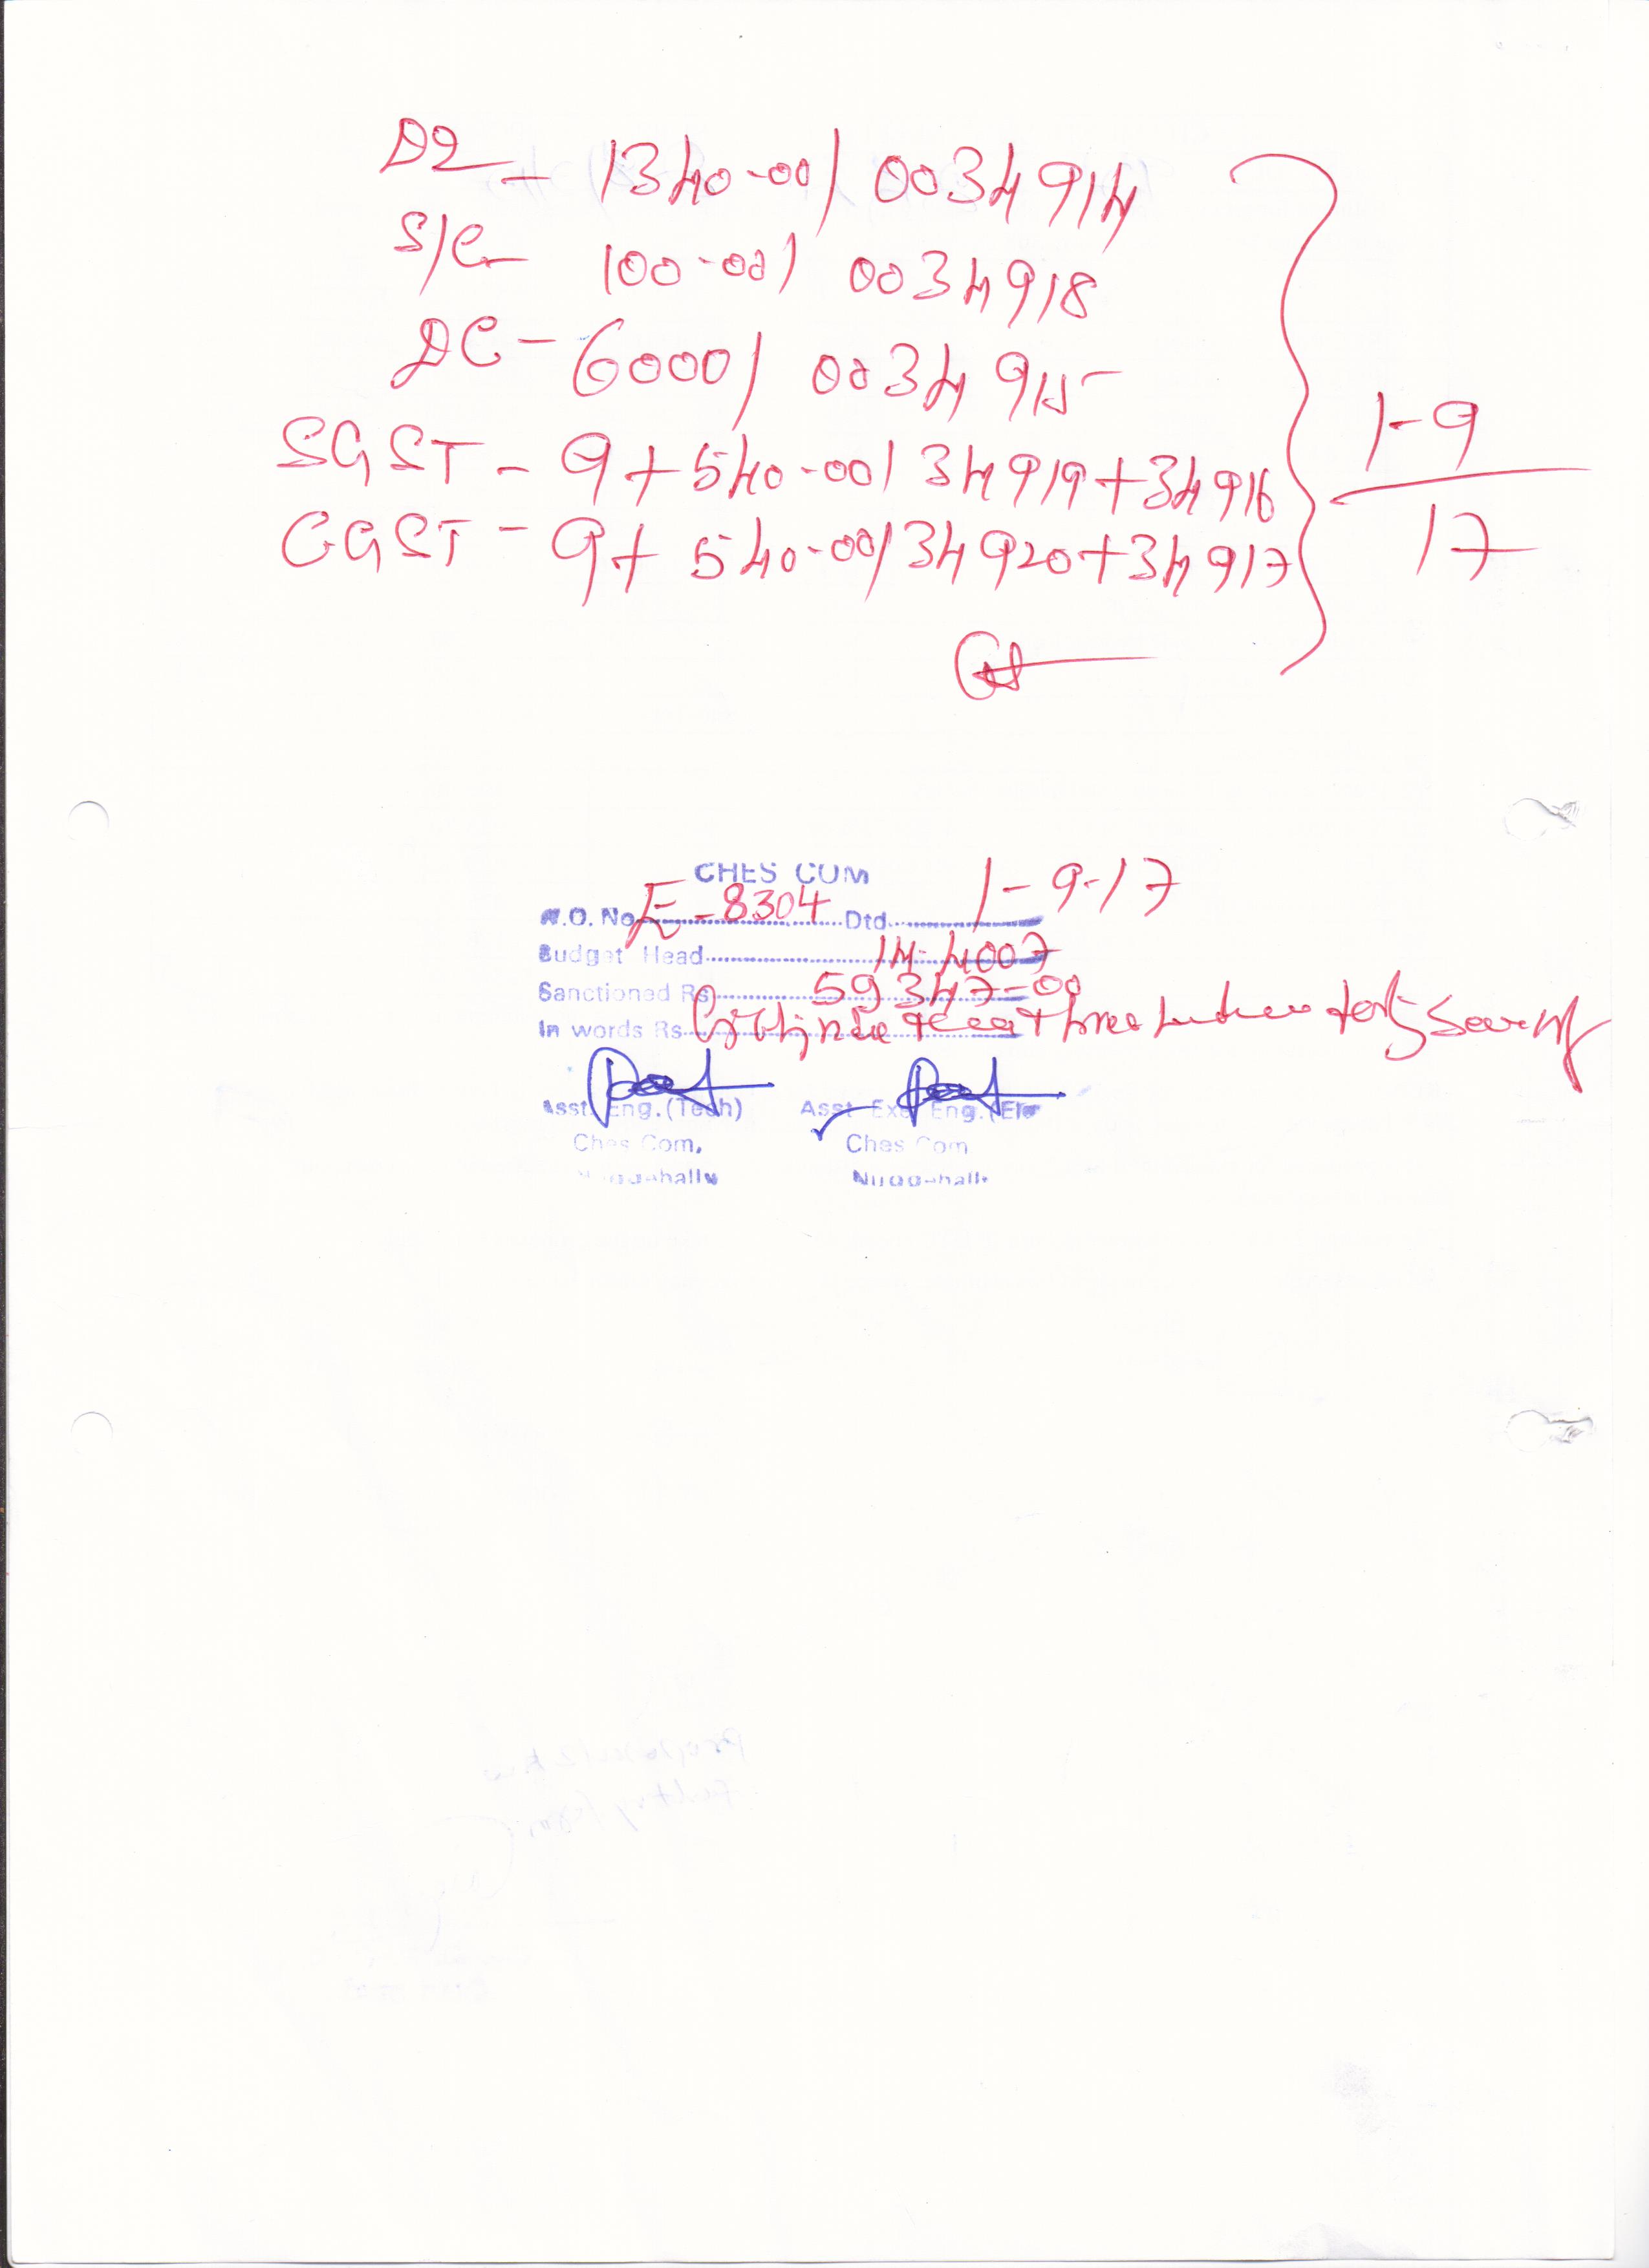 D2 - 1340-00/ 0034914
S/C - 100-00/ 0034918
DC - 6000/ 0034915
SGST - 9+540-00/ 34919+34916
CGST - 9+540-00/ 34920+34917
1-9
17
CHES COM
W.O. No. E-8304 Dtd. 1-9-17
Budget Head 14-4007
Sanctioned Rs. 59347-00
In words Rs. three forty
Asst. Eng. (Tech) Asst Exe Eng. (Ele
Ches Com, Ches Com